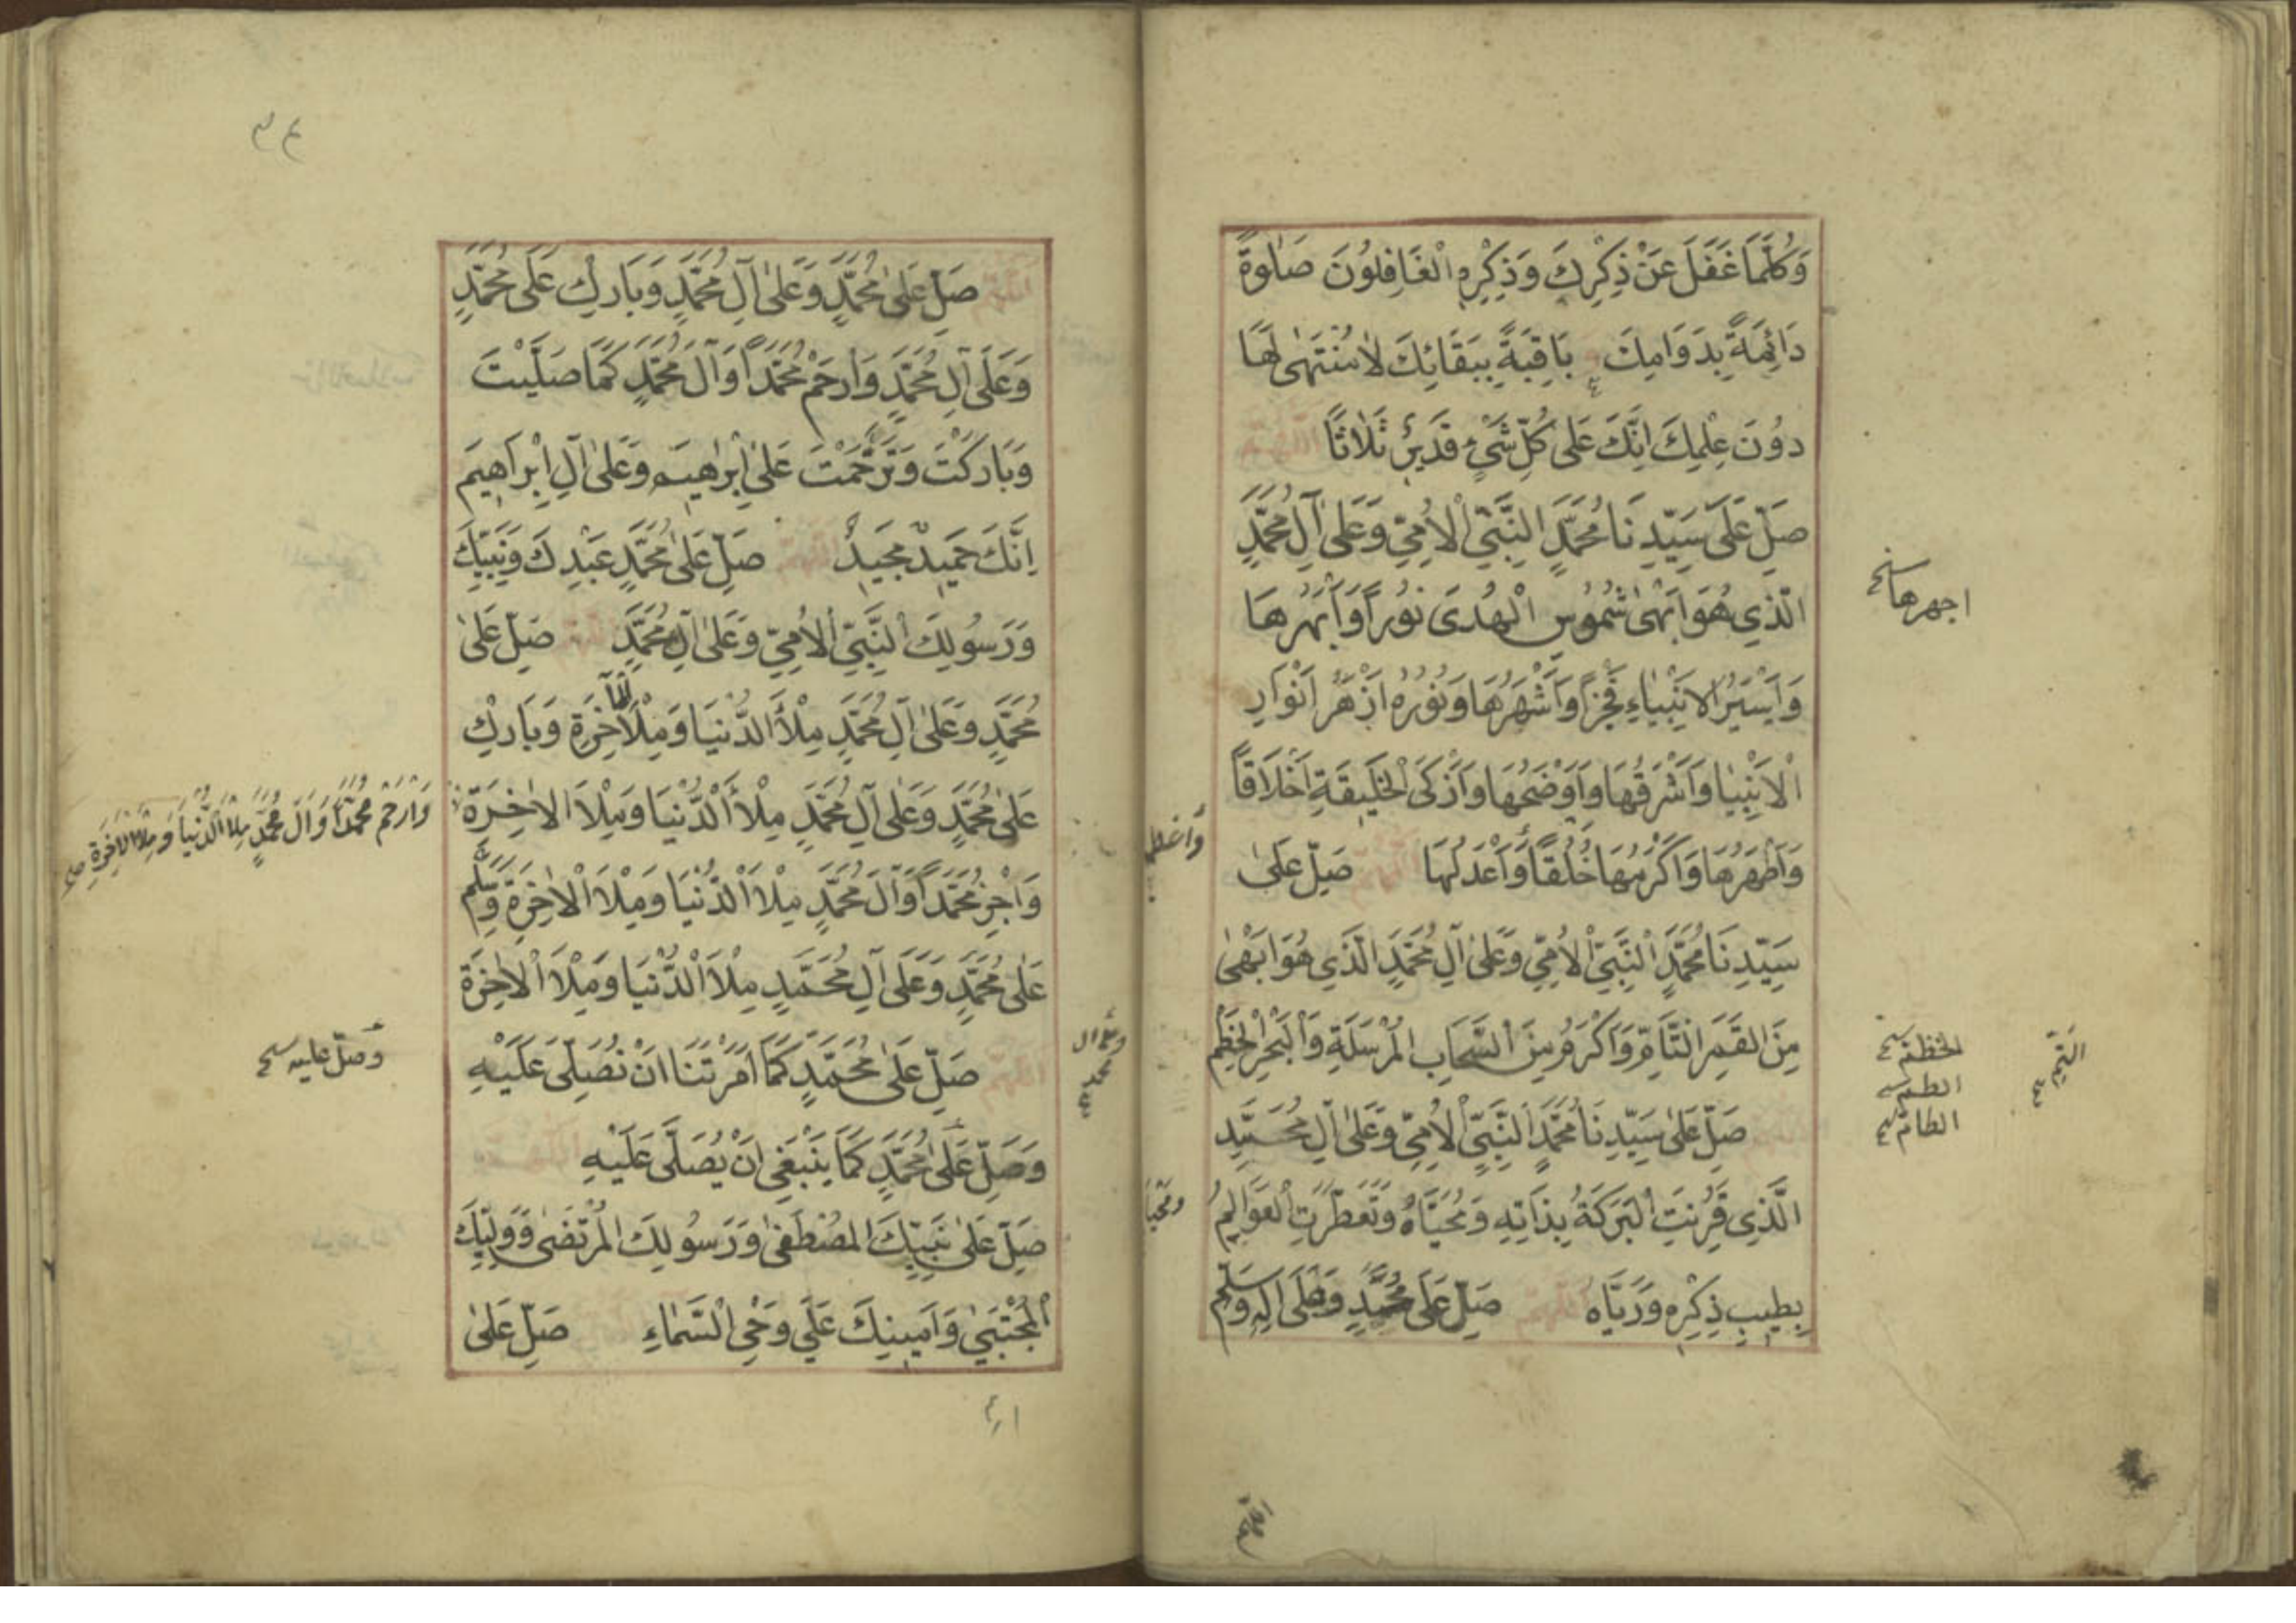 وَكُلَّمَا غَفَلَ عَنْ ذِكْرِكَ وَذِكْرِهِ الْغَافِلُونَ صَلٰوةً
دَائِمَةً بِدَوَامِكَ بَاقِيَةً بِبَقَائِكَ لَا مُنْتَهٰى لَهَا
دُونَ عِلْمِكَ اِنَّكَ عَلٰى كُلِّ شَيْءٍ قَدِيرٌ ثَلَاثًا اللّهمّ
صَلِّ عَلٰى سَيِّدِنَا مُحَمَّدٍ النَّبِيِّ الْاُمِّيِّ وَعَلٰى آلِ مُحَمَّدٍ
الَّذِي هُوَ اَبْهٰى شُمُوسِ الْهُدَى نُورًا وَاَبْهَرُهَا
اجهرها
وَاَسْيَرُ الْاَنْبِيَاءِ فَخْرًا وَاَشْهَرُهَا وَنُورُهُ اَزْهَرُ اَنْوَارِ
الْاَنْبِيَا وَاَشْرَقُهَا وَاَوْضَحُهَا وَاَزْكَى الْخَلِيقَةِ اَخْلَاقًا
وَاَطْهَرُهَا وَاَكْرَمُهَا خُلُقًا وَاَعْدَلُهَا اللّهمّ صَلِّ عَلٰى
سَيِّدِنَا مُحَمَّدٍ النَّبِيِّ الْاُمِّيِّ وَعَلٰى آلِ مُحَمَّدٍ الَّذِي هُوَ اَبْهٰى
مِنَ الْقَمَرِ التَّامِّ وَاَكْرَمُ مِنَ السَّحَابِ الْمُرْسَلَةِ وَالْبَحْرِ الْخَطْمِ
الطمّ
الطامّ
اللّهمّ صَلِّ عَلٰى سَيِّدِنَا مُحَمَّدٍ النَّبِيِّ الْاُمِّيِّ وَعَلٰى آلِ مُحَمَّدٍ
الَّذِي قُرِنَتِ الْبَرَكَةُ بِذَاتِهِ وَمُحَيَّاهُ وَتَعَطَّرَتِ الْعَوَالِمُ
بِطِيبِ ذِكْرِهِ وَرَيَّاهُ اللّهمّ صَلِّ عَلٰى مُحَمَّدٍ وَعَلٰى اٰلِهِ وَسَلِّمْ
اللّهمّ
اللّهمّ صَلِّ عَلٰى مُحَمَّدٍ وَعَلٰى آلِ مُحَمَّدٍ وَبَارِكْ عَلٰى مُحَمَّدٍ
وَعَلٰى آلِ مُحَمَّدٍ وَارْحَمْ مُحَمَّدًا وَآلَ مُحَمَّدٍ كَمَا صَلَّيْتَ
وَبَارَكْتَ وَتَرَحَّمْتَ عَلٰى اِبْرٰهِيمَ وَعَلٰى آلِ اِبْرَاهِيمَ
اِنَّكَ حَمِيدٌ مَجِيدٌ اللّهمّ صَلِّ عَلٰى مُحَمَّدٍ عَبْدِكَ وَنَبِيِّكَ
وَرَسُولِكَ النَّبِيِّ الْاُمِّيِّ وَعَلٰى آلِ مُحَمَّدٍ اللّهمّ صَلِّ عَلٰى
مُحَمَّدٍ وَعَلٰى آلِ مُحَمَّدٍ مِلْأَ الدُّنْيَا وَمِلْأَ الْآخِرَةِ وَبَارِكْ
عَلٰى مُحَمَّدٍ وَعَلٰى آلِ مُحَمَّدٍ مِلْأَ الدُّنْيَا وَمِلْأَ الْاٰخِرَةِ
وَارْحَمْ مُحَمَّدًا وَآلَ مُحَمَّدٍ مِلْأَ الدُّنْيَا وَمِلْأَ الْاٰخِرَةِ صح
وَاجْزِ مُحَمَّدًا وَآلَ مُحَمَّدٍ مِلْأَ الدُّنْيَا وَمِلْأَ الْاٰخِرَةِ وَسَلِّمْ
عَلٰى مُحَمَّدٍ وَعَلٰى آلِ مُحَمَّدٍ مِلْأَ الدُّنْيَا وَمِلْأَ الْاٰخِرَةِ
اللّهمّ صَلِّ عَلٰى مُحَمَّدٍ كَمَا اَمَرْتَنَا اَنْ نُصَلِّيَ عَلَيْهِ
وصلّ عليه
وَصَلِّ عَلٰى مُحَمَّدٍ كَمَا يَنْبَغِي اَنْ يُصَلَّى عَلَيْهِ اللّهمّ
صَلِّ عَلٰى نَبِيِّكَ الْمُصْطَفٰى وَرَسُولِكَ الْمُرْتَضٰى وَوَلِيِّكَ
الْمُجْتَبٰى وَاَمِينِكَ عَلٰى وَحْيِ السَّمَاءِ صَلِّ عَلٰى